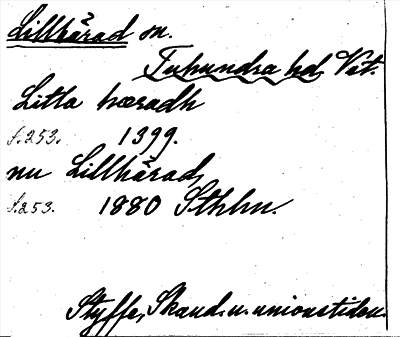 Lillhärad sn.
Tuhundra hd, Vst.
Litla hæradh
s. 253. 1399.
nu Lillhärad,
s. 253. 1880 Sthlm.
Styffe, Skand. u. unionstiden.